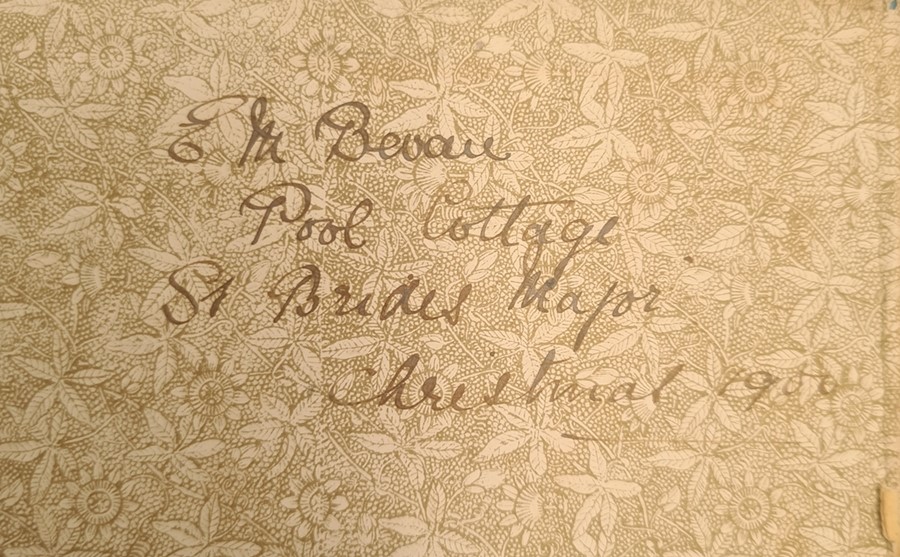 E M Bevan
Pool Cottage
St Brides Major
Christmas 1900